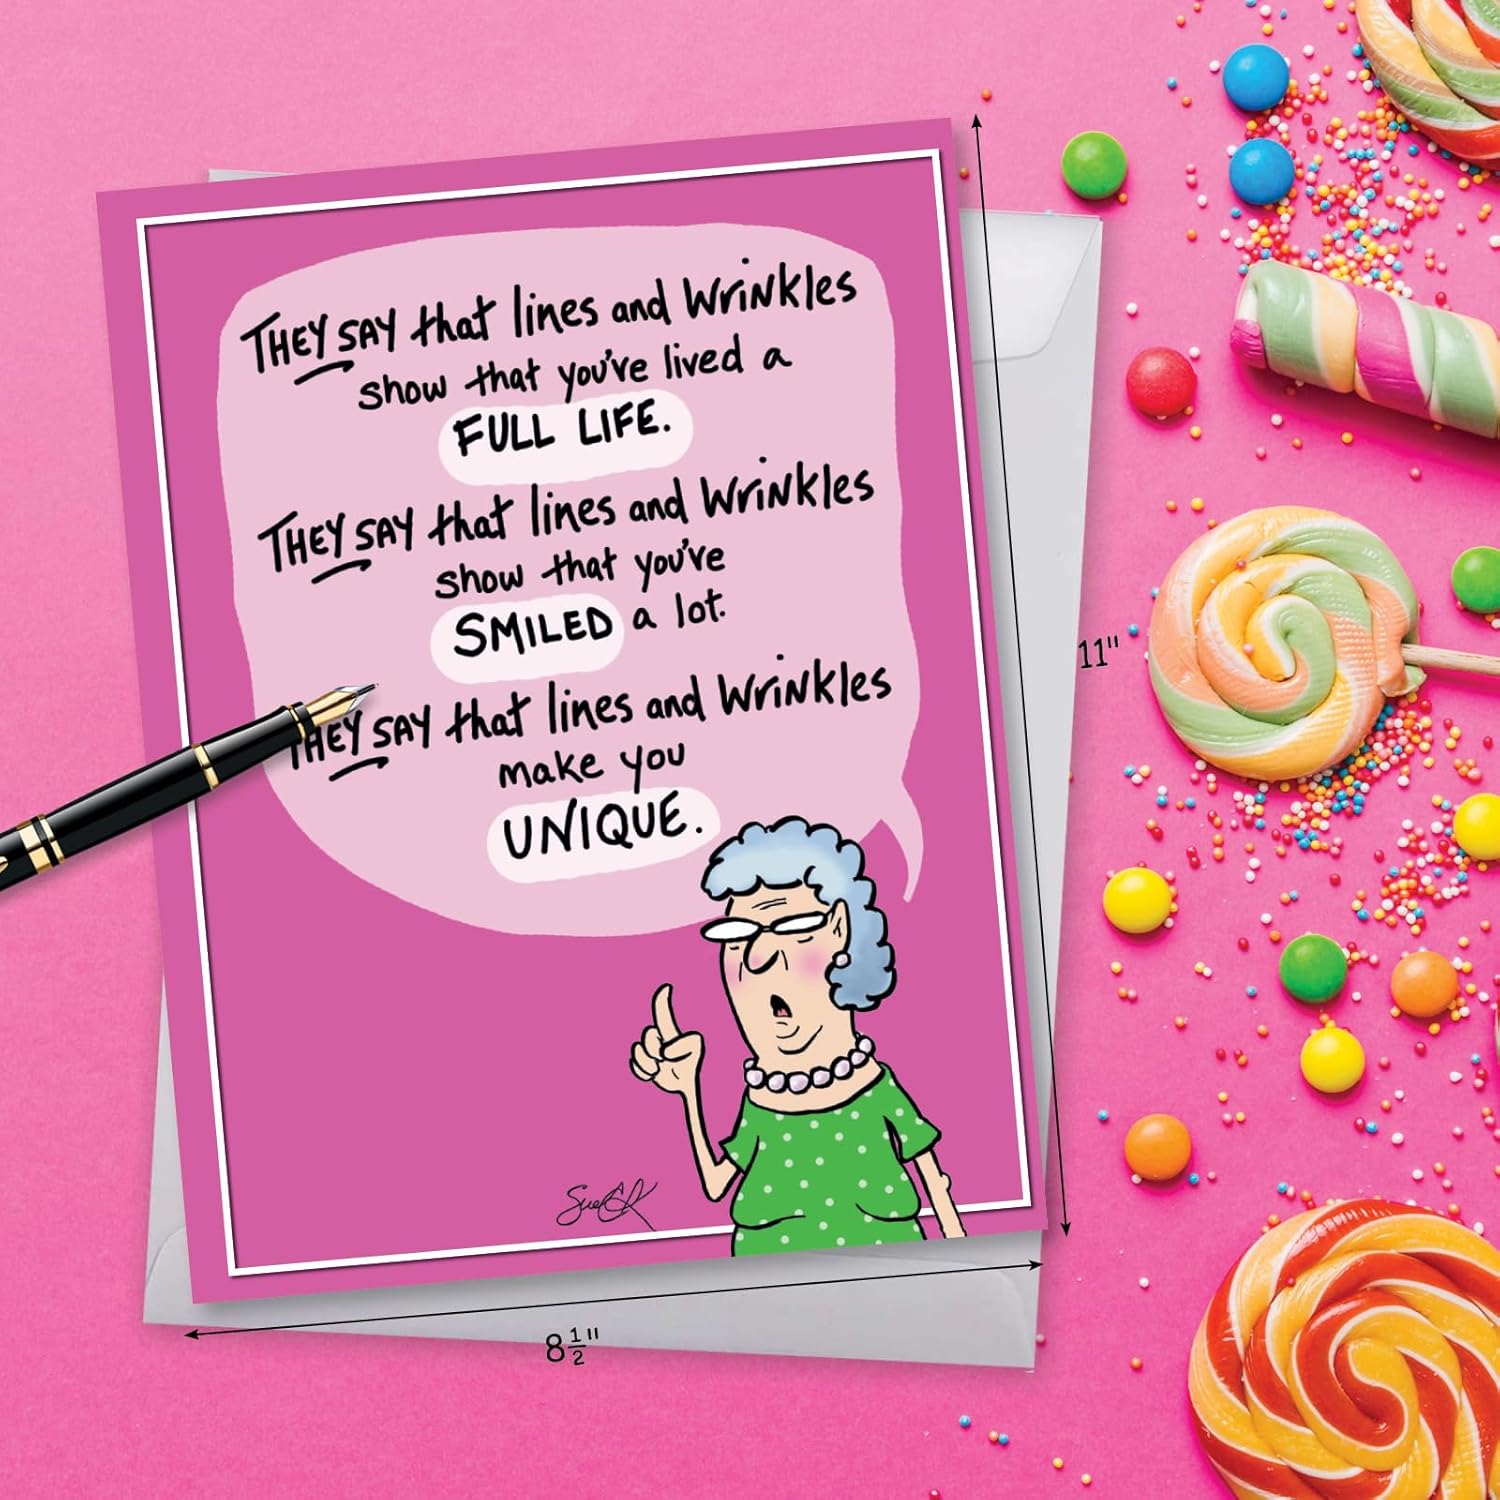 THEY SAY that lines and Wrinkles
show that you've lived a
FULL LIFE.
THEY SAY that lines and Wrinkles
show that you've
SMILED a lot.
THEY SAY that lines and Wrinkles
make you
UNIQUE.
11"
8 1/2"